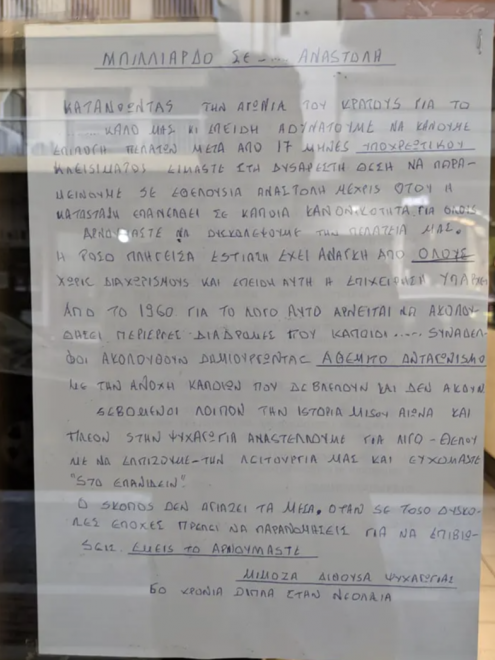 ΜΠΙΛΛΙΑΡΔΟ ΣΕ -.... ΑΝΑΣΤΟΛΗ
ΚΑΤΑΝΟΩΝΤΑΣ ΤΗΝ ΑΓΩΝΙΑ ΤΟΥ ΚΡΑΤΟΥΣ ΓΙΑ ΤΟ
.... ΚΑΛΟ ΜΑΣ ΚΙ ΕΠΕΙΔΗ ΑΔΥΝΑΤΟΥΜΕ ΝΑ ΚΑΝΟΥΜΕ
ΕΠΙΛΟΓΗ ΠΕΛΑΤΩΝ ΜΕΤΑ ΑΠΟ 17 ΜΗΝΕΣ ΥΠΟΧΡΕΩΤΙΚΟΥ
ΚΛΕΙΣΙΜΑΤΟΣ ΕΙΜΑΣΤΕ ΣΤΗ ΔΥΣΑΡΕΣΤΗ ΘΕΣΗ ΝΑ ΠΑΡΑ-
ΜΕΙΝΟΥΜΕ ΣΕ ΕΘΕΛΟΥΣΙΑ ΑΝΑΣΤΟΛΗ ΜΕΧΡΙΣ ΟΤΟΥ Η
ΚΑΤΑΣΤΑΣΗ ΕΠΑΝΕΛΘΕΙ ΣΕ ΚΑΠΟΙΑ ΚΑΝΟΝΙΚΟΤΗΤΑ ΓΙΑ ΟΛΟΥΣ
ΑΡΝΟΥΜΑΣΤΕ ΝΑ ΔΥΣΚΟΛΕΨΟΥΜΕ ΤΗΝ ΠΕΛΑΤΕΙΑ ΜΑΣ.
Η ΤΟΣΟ ΠΛΗΓΕΙΣΑ ΕΣΤΙΑΣΗ ΕΧΕΙ ΑΝΑΓΚΗ ΑΠΟ ΟΛΟΥΣ
ΧΩΡΙΣ ΔΙΑΧΩΡΙΣΜΟΥΣ ΚΑΙ ΕΠΕΙΔΗ ΑΥΤΗ Η ΕΠΙΧΕΙΡΗΣΗ ΥΠΑΡΧΕΙ
ΑΠΟ ΤΟ 1960 ΓΙΑ ΤΟ ΛΟΓΟ ΑΥΤΟ ΑΡΝΕΙΤΑΙ ΝΑ ΑΚΟΛΟΥ-
ΘΗΣΕΙ ΠΕΡΙΕΡΓΕΣ ΔΙΑΔΡΟΜΕΣ ΠΟΥ ΚΑΠΟΙΟΙ ..... ΣΥΝΑΔΕΛ-
ΦΟΙ ΑΚΟΛΟΥΘΟΥΝ ΔΗΜΙΟΥΡΓΩΝΤΑΣ ΑΘΕΜΙΤΟ ΑΝΤΑΓΩΝΙΣΜΟ
ΜΕ ΤΗΝ ΑΝΟΧΗ ΚΑΠΟΙΩΝ ΠΟΥ ΔΕ ΒΛΕΠΟΥΝ ΚΑΙ ΔΕΝ ΑΚΟΥΝ
ΣΕΒΟΜΕΝΟΙ ΛΟΙΠΟΝ ΤΗΝ ΙΣΤΟΡΙΑ ΜΙΣΟΥ ΑΙΩΝΑ ΚΑΙ
ΠΛΕΟΝ ΣΤΗΝ ΨΥΧΑΓΩΓΙΑ ΑΝΑΣΤΕΛΛΟΥΜΕ ΓΙΑ ΛΙΓΟ - ΘΕΛΟΥ
ΜΕ ΝΑ ΕΛΠΙΖΟΥΜΕ - ΤΗΝ ΛΕΙΤΟΥΡΓΙΑ ΜΑΣ ΚΑΙ ΕΥΧΟΜΑΣΤΕ
"ΣΤΟ ΕΠΑΝΙΔΕΙΝ"
Ο ΣΚΟΠΟΣ ΔΕΝ ΑΓΙΑΖΕΙ ΤΑ ΜΕΣΑ. ΟΤΑΝ ΣΕ ΤΟΣΟ ΔΥΣΚΟ-
ΛΕΣ ΕΠΟΧΕΣ ΠΡΕΠΕΙ ΝΑ ΠΑΡΑΝΟΜΗΣΕΙΣ ΓΙΑ ΝΑ ΕΠΙΒΙΩ-
ΣΕΙΣ. ΕΜΕΙΣ ΤΟ ΑΡΝΟΥΜΑΣΤΕ
ΜΙΜΟΖΑ ΑΙΘΟΥΣΑ ΨΥΧΑΓΩΓΙΑΣ
60 ΧΡΟΝΙΑ ΔΙΠΛΑ ΣΤΗΝ ΝΕΟΛΑΙΑ